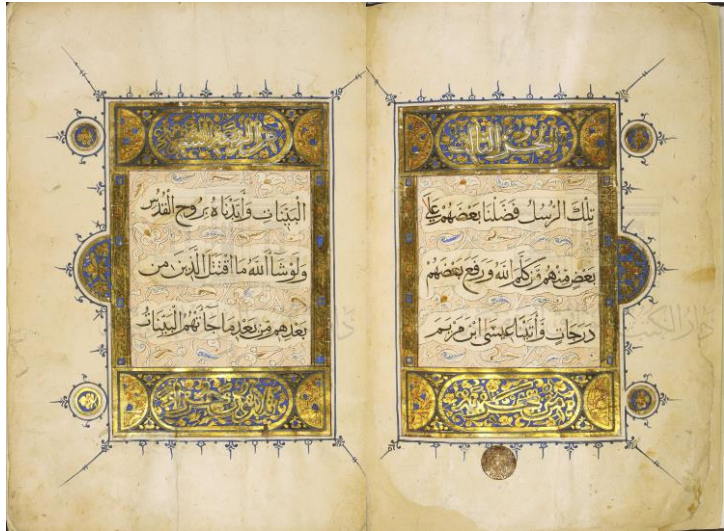 الجزء الثالث
تِلْكَ الرُّسُلُ فَضَّلْنَا بَعْضَهُمْ عَلَى
بَعْضٍ مِنْهُمْ مَنْ كَلَّمَ اللهُ وَرَفَعَ بَعْضَهُمْ
دَرَجَاتٍ وَأَتَيْنَا عِيسَى ابْنَ مَرْيَمَ
الْبَيِّنَاتِ وَأَيَّدْنَاهُ بِرُوحِ الْقُدُسِ
وَلَوْ شَآءَ اللهُ مَا اقْتَتَلَ الَّذِينَ مِنْ
بَعْدِهِمْ مِنْ بَعْدِ مَا جَآءَتْهُمُ الْبَيِّنَاتُ
دار الكتب